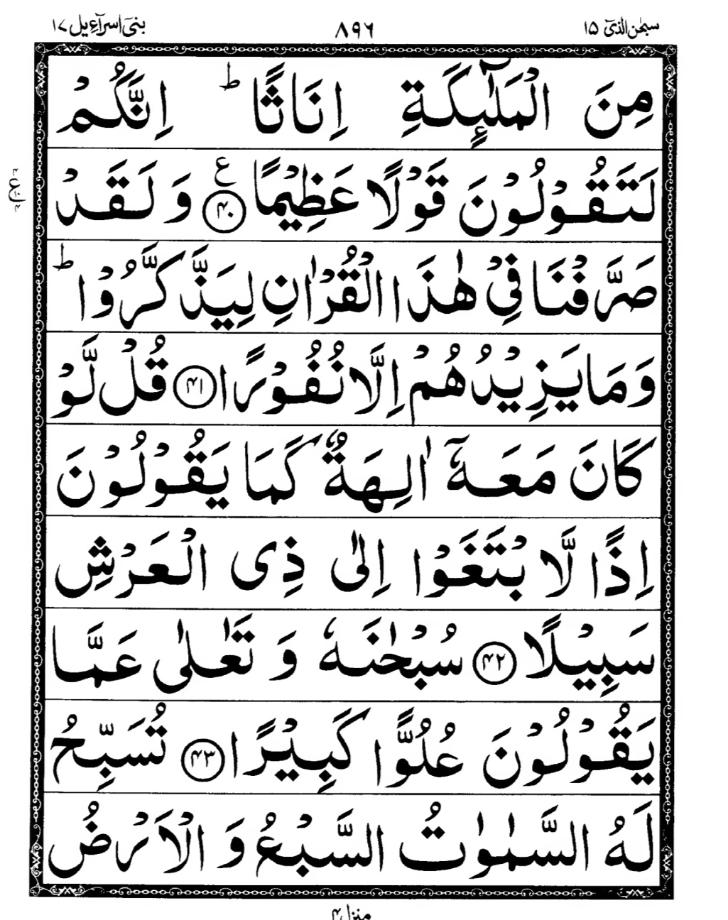 سبحٰن الذیٓ ۱۵ ۸۹۶ بنیٓ اسرآءیل ۱۷
مِنَ الْمَلٰٓئِكَةِ اِنَاثًا ؕ اِنَّكُمْ
لَتَقُوْلُوْنَ قَوْلًا عَظِیْمًا ﴿۴۰﴾ ع وَ لَقَدْ
صَرَّفْنَا فِیْ هٰذَا الْقُرْاٰنِ لِیَذَّكَّرُوْا ؕ
وَ مَا یَزِیْدُهُمْ اِلَّا نُفُوْرًا ﴿۴۱﴾ قُلْ لَّوْ
كَانَ مَعَهٗۤ اٰلِهَةٌ كَمَا یَقُوْلُوْنَ
اِذًا لَّا بْتَغَوْا اِلٰی ذِی الْعَرْشِ
سَبِیْلًا ﴿۴۲﴾ سُبْحٰنَهٗ وَ تَعٰلٰی عَمَّا
یَقُوْلُوْنَ عُلُوًّا كَبِیْرًا ﴿۴۳﴾ تُسَبِّحُ
لَهُ السَّمٰوٰتُ السَّبْعُ وَ الْاَرْضُ
منزل ۴